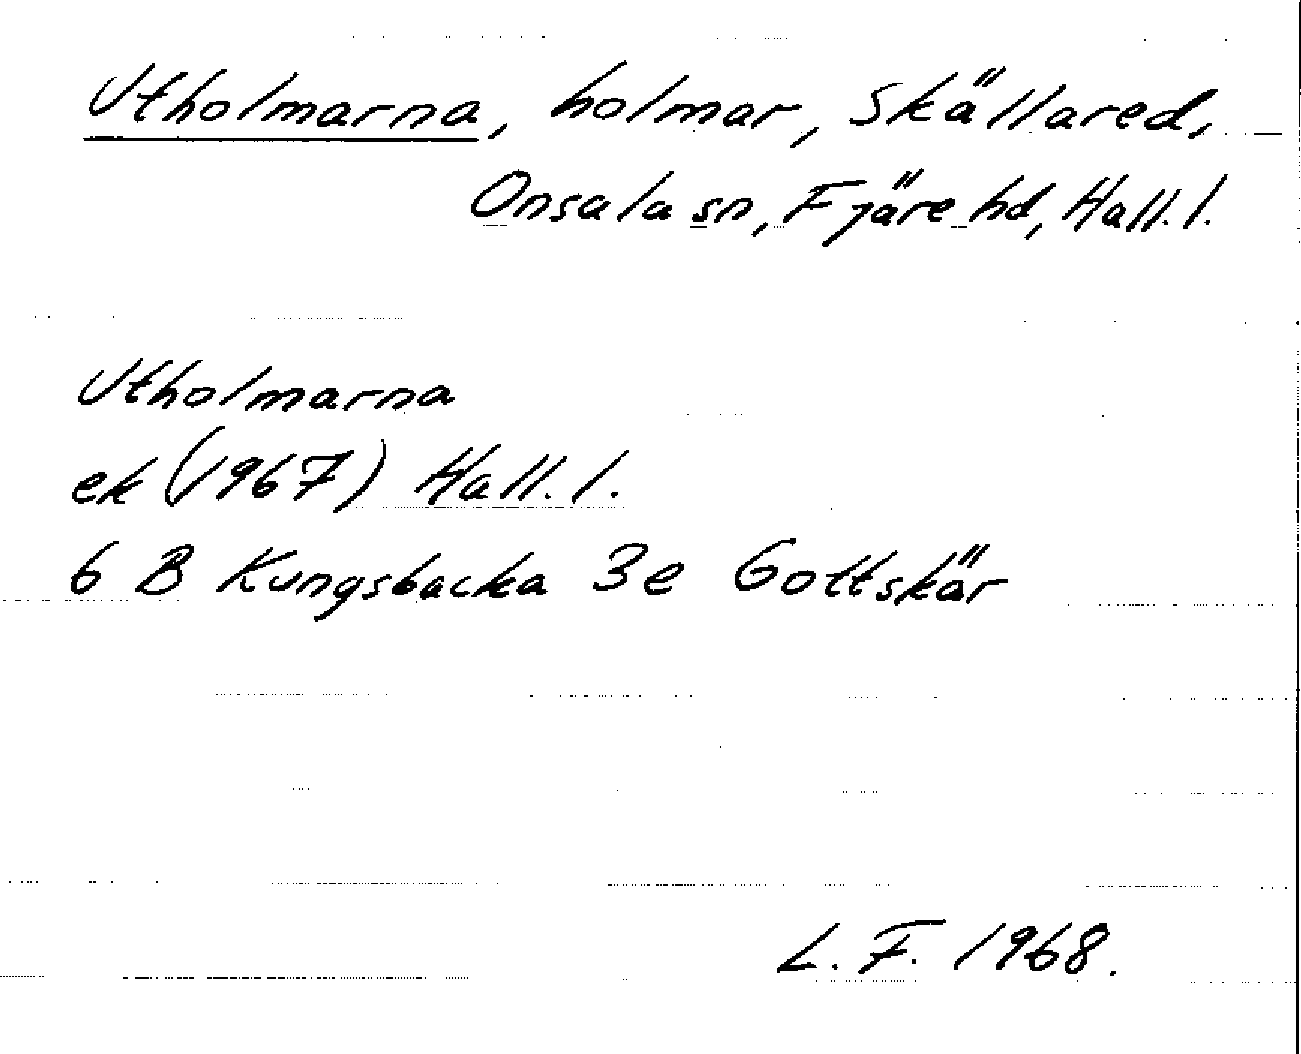 Utholmarna, holmar, Skällared,
Onsala sn, Fjäre hd, Hall. l.
Utholmarna
ek (1967) Hall. l.
6 B Kungsbacka 3e Gottskär
L. F. 1968.